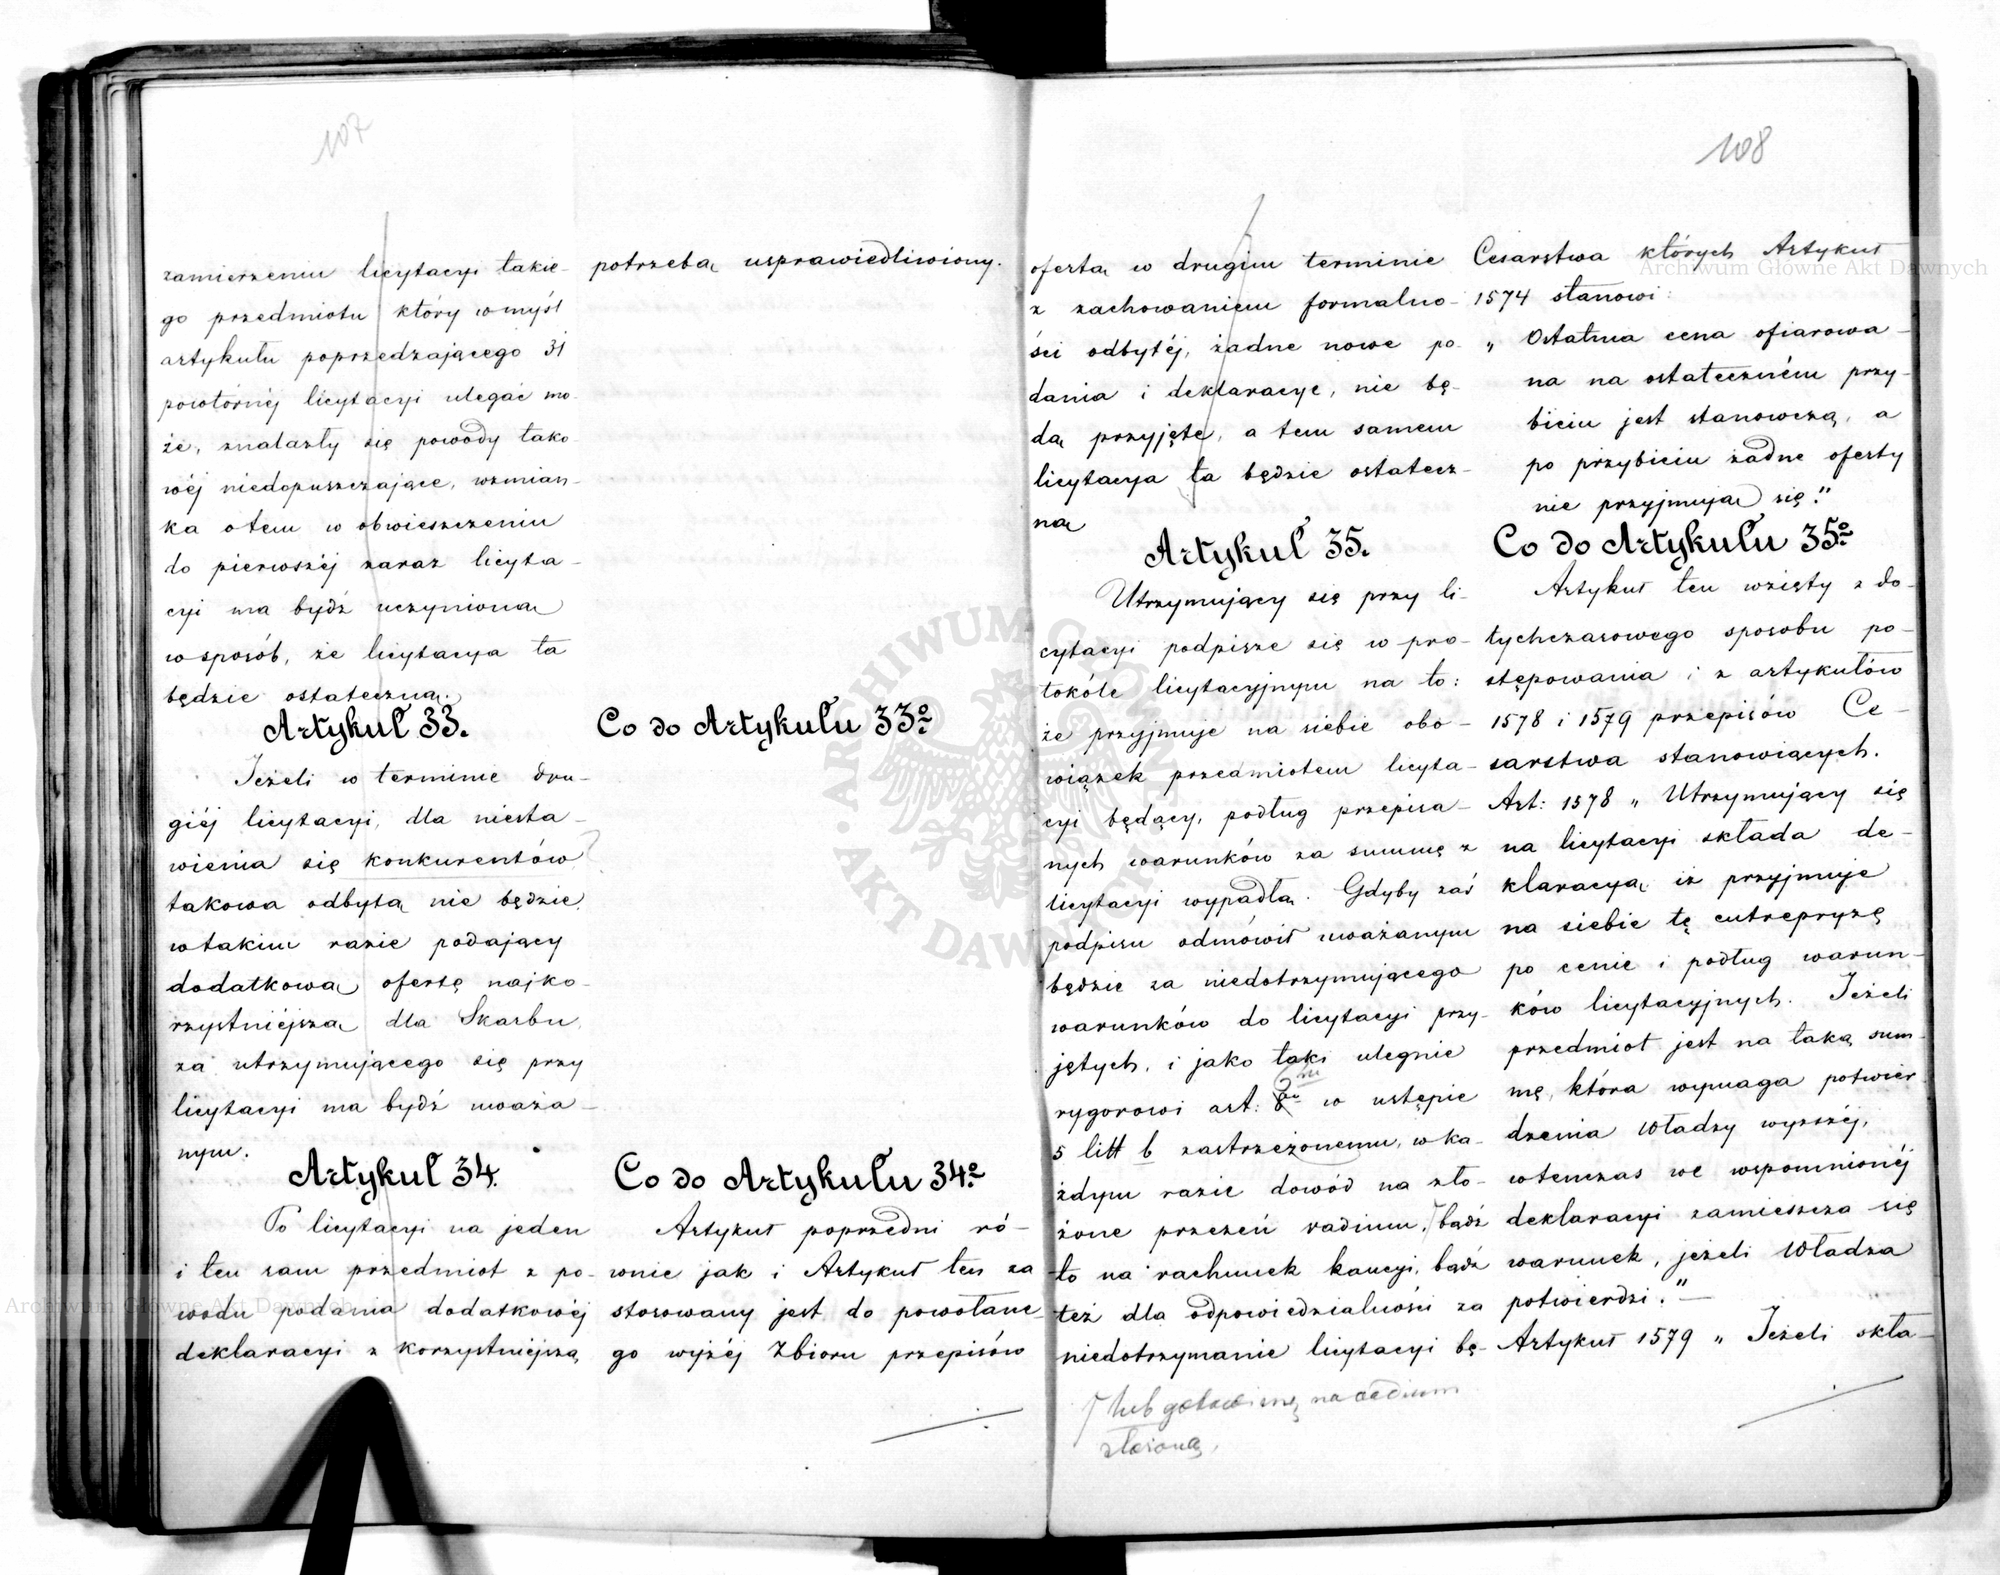 107
zamierzeniu licytacyi takie-
go przedmiotu który w myśl
artykułu poprzedzającego 31
powtórnéj licytacyi ulegać mo-
że, znalazły się powody tako-
wéj niedopuszczające, wzmian-
ka o tem w obwieszczeniu
do pierwszéj zaraz licyta-
cyi ma bydź uczynioną
w sposób, że licytacya ta
będzie ostateczną.
Artykuł 33.
Jeżeli w terminie dru-
giéj licytacyi, dla niesta-
wienia się konkurentów
takowa odbytą nie będzie,
w takim razie podający
dodatkową ofertę najko-
rzystniejszą dla Skarbu,
za utrzymującego się przy
licytacyi ma bydź uważa-
nym.
Artykuł 34.
Po licytacyi na jeden
i ten sam przedmiot z po-
wodu podania dodatkowéj
deklaracyi z korzystniejszą
potrzebą usprawiedliwiony.
Co do Artykułu 33º
Co do Artykułu 34º
Artykuł poprzedni ró-
wnie jak i Artykuł ten za
stosowany jest do powołane-
go wyżéj Zbioru przepisów
108
ofertą w drugim terminie
z zachowaniem formalno-
ści odbytéj, żadne nowe po-
dania i deklaracye, nie bę-
dą przyjęte, a tem samem
licytacya ta będzie ostatecz-
ną
Artykuł 35.
Utrzymujący się przy li-
cytacyi podpisze się w pro-
tokóle licytacyjnym na to:
że przyjmuje na siebie obo-
wiązek przedmiotem licyta-
cyi będący, podług przepisa-
nych warunków za summę z
licytacyi wypadłą. Gdyby zaś
podpisu odmówił uważanym
będzie za niedotrzymującego
warunków do licytacyi przy-
jętych, i jako taki ulegnie
rygorowi art: w ustępie
5 litt b zastrzeżonemu, w ka-
żdym razie dowód na zło-
żone przezeń vadium, bądź
to na rachunek kaucyi, bądź
też dla odpowiedzialności za
niedotrzymanie licytacyi bę-
lub gotowiznę na vadium
złożoną,
Cesarstwa których Artykuł
1574 stanowi:
„ Ostatnia cena ofiarowa-
na na ostateczném przy-
biciu jest stanowczą, a
po przybiciu żadne oferty
nie przyjmują się."
Co do Artykułu 35º
Artykuł ten wzięty z do-
tychczasowego sposobu po-
stępowania i z artykułów
1578 i 1579 przepisów Ce-
sarstwa stanowiących.
Art: 1578 „ Utrzymujący się
na licytacyi składa de-
klaracyą iż przyjmuje
na siebie tę entrepryzę
po cenie i podług warun-
ków licytacyjnych. Jeżeli
przedmiot jest na taką sum-
mę, która wymaga potwier
dzenia Władzy wyższéj,
wtenczas we wspomnionéj
deklaracyi zamieszcza się
warunek, jeżeli Władza
potwierdzi."—
Artykuł 1579 „ Jeżeli skła-
Archiwum Główne Akt Dawnych
ARCHIWUM GŁÓWNE AKT DAWNYCH
Archiwum Główne Akt Dawnych